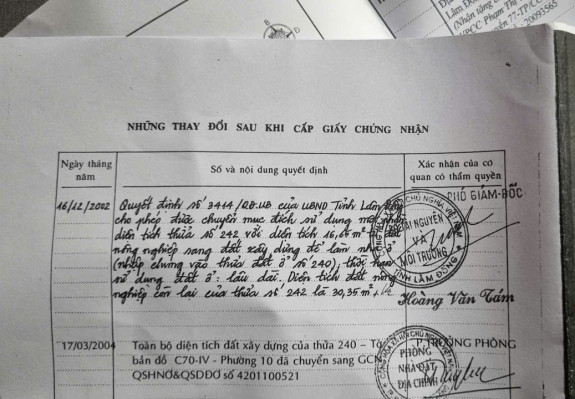 Lâm Đồ
(Nhận tặng c
VPCC Phạm Thị
Phường 77-TP/CC
20093565
NHỮNG THAY ĐỔI SAU KHI CẤP GIẤY CHỨNG NHẬN
Ngày tháng năm
Số và nội dung quyết định
Xác nhận của cơ quan có thẩm quyền
16/12/2002
Quyết định số 3414/QĐ.UB của UBND Tỉnh Lâm
cho phép được chuyển mục đích sử dụng một
diện tích thửa số 242 với diện tích
nông nghiệp sang đất xây dựng để làm nhà ở
(nhập chung vào thửa đất ở số 240), thời hạn
sử dụng đất ở: lâu dài. Diện tích đất nông
nghiệp còn lại của thửa số 242 là 30,35 m²
PHÓ GIÁM ĐỐC
TÀI NGUYÊN
VÀ
MÔI TRƯỜNG
TỈNH LÂM ĐỒNG
Hoàng Văn Tám
17/03/2004
Toàn bộ diện tích đất xây dựng của thửa 240 – Tờ
bản đồ C70-IV - Phường 10 đã chuyển sang GCN
QSHNỞ&QSDĐỞ số 4201100521
P.TRƯỞNG PHÒNG
PHÒNG
NHÀ ĐẤT
ĐỊA CHÍNH